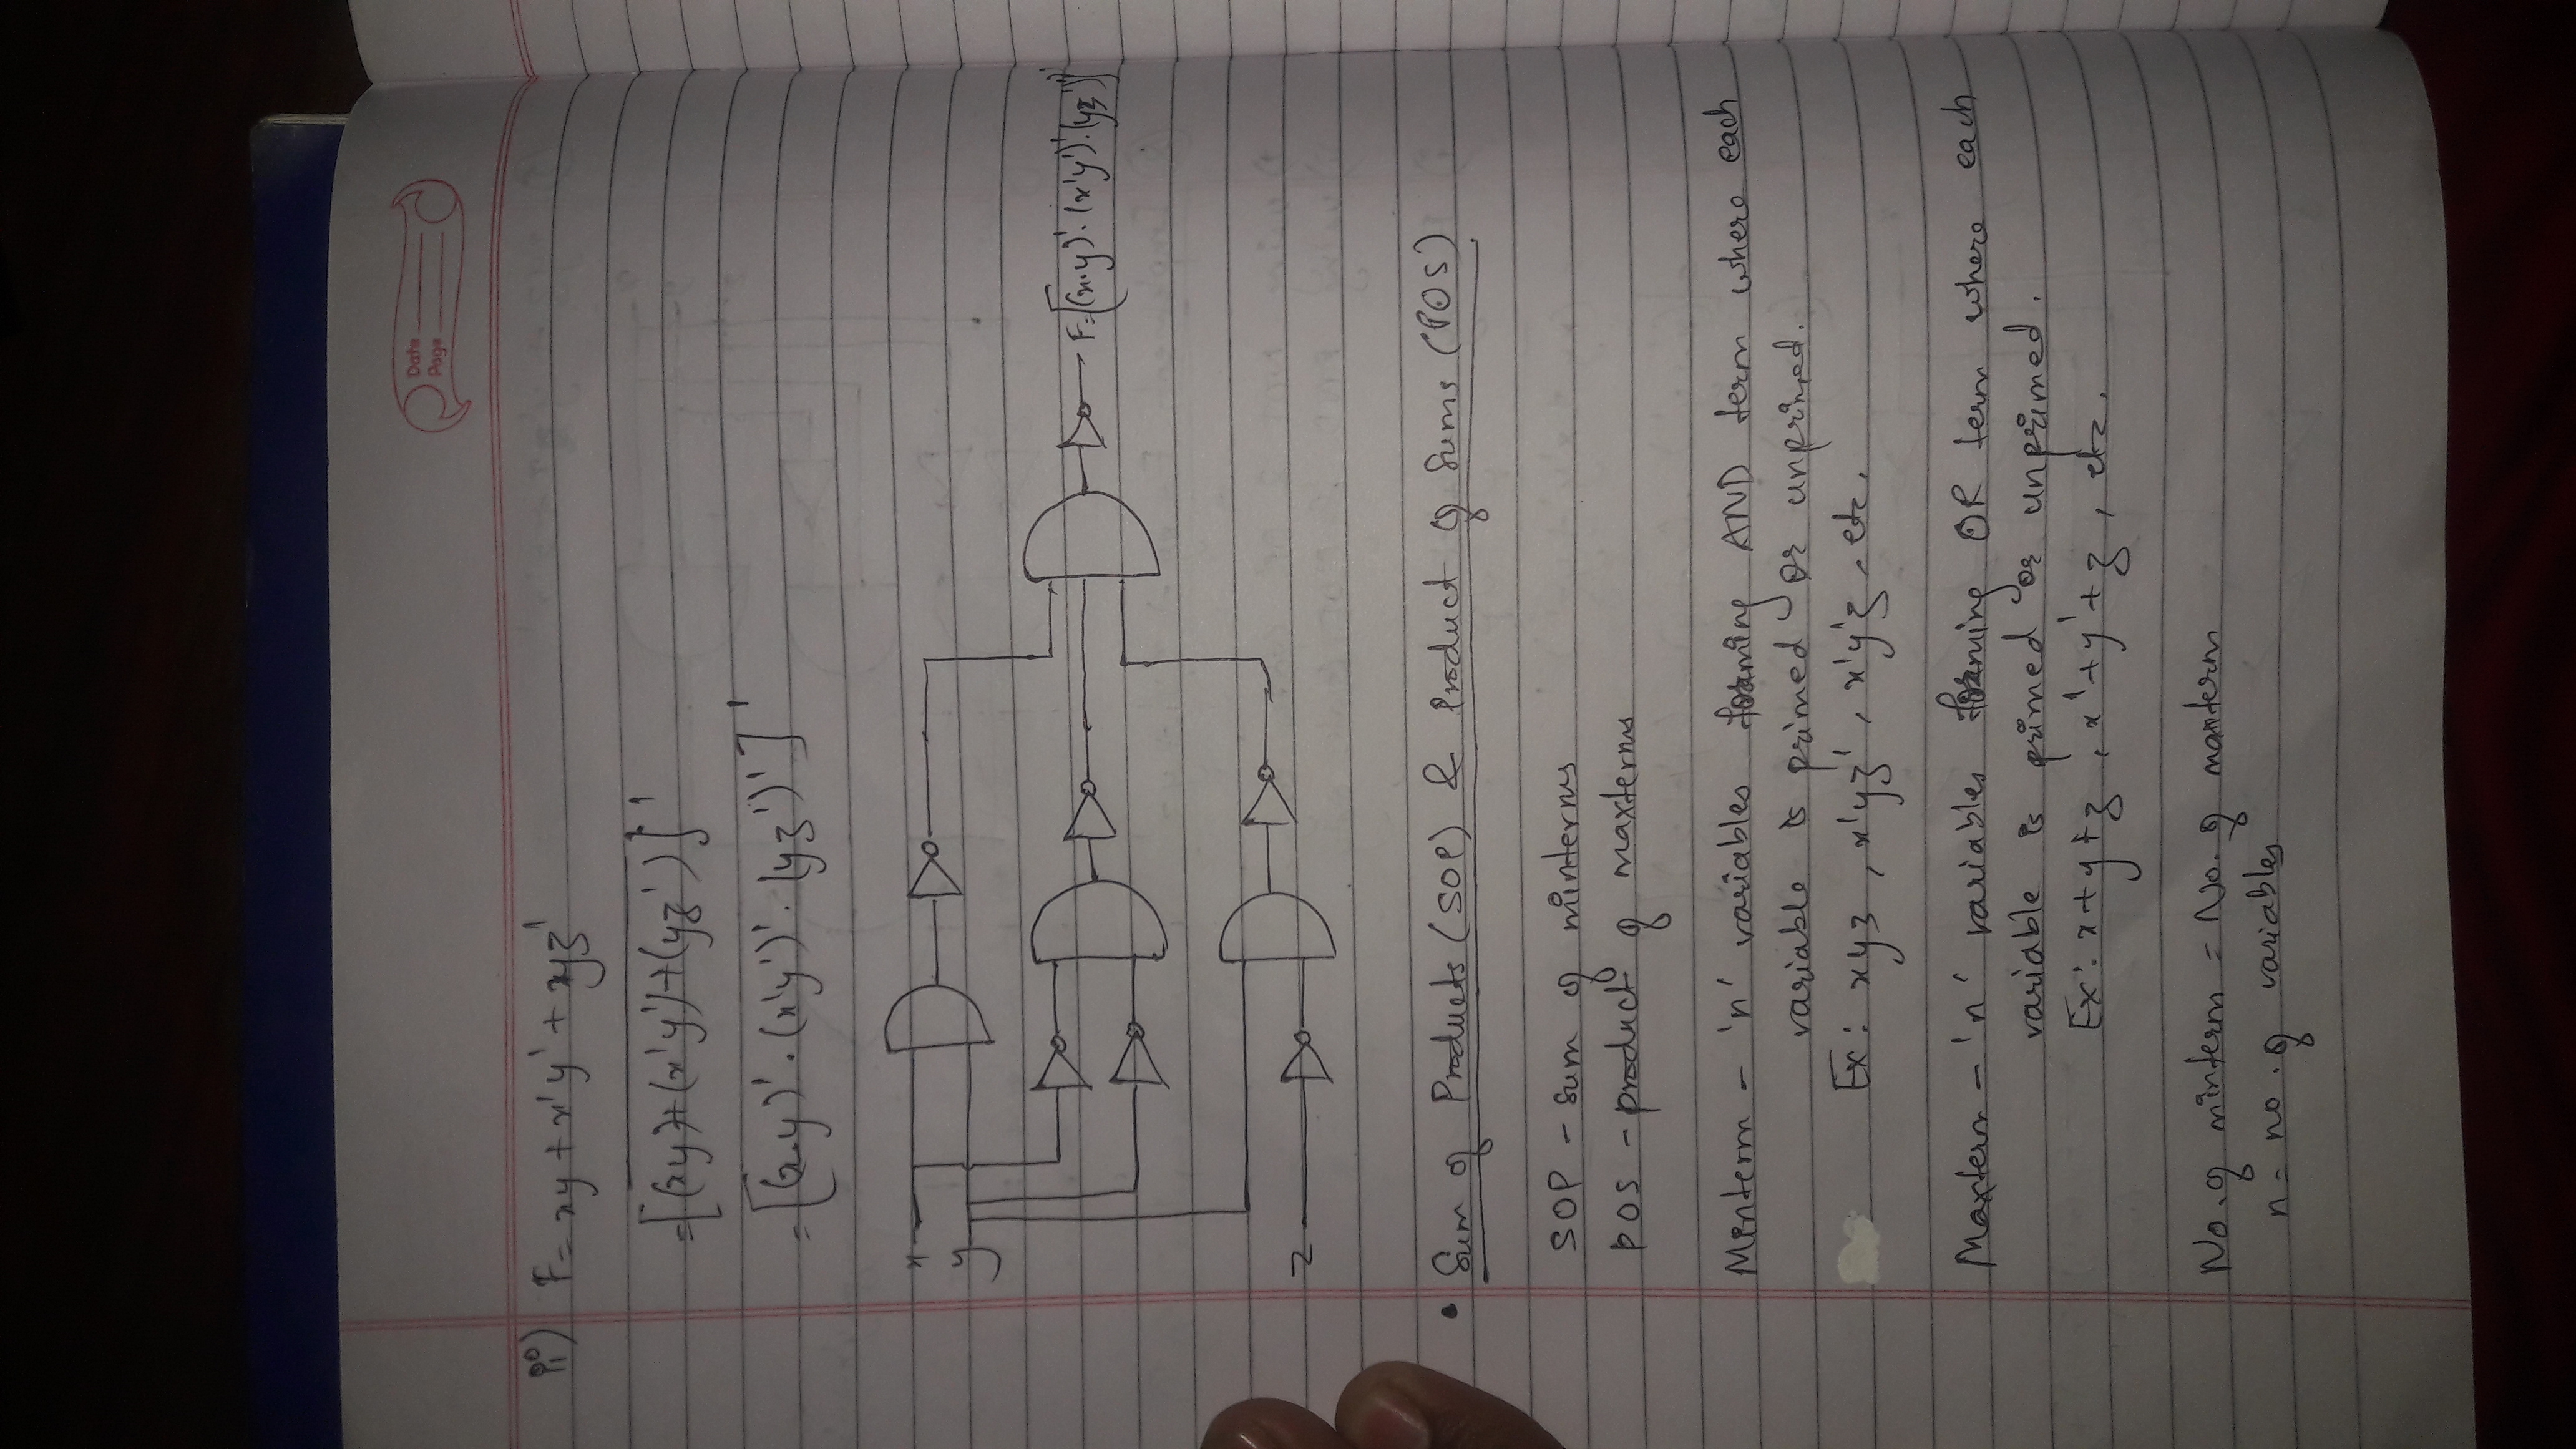 Date
Page
ii) F = xy + x'y' + xyz'
= [(xy)+(x'y')+(yz')]'
= [(x.y)'.(x'y')'.(yz')']'
x
y
F=[(x.y)'.(x'y')'.(yz')']'
z
• Sum of Products (SOP) & Product of Sums (POS)
SOP - sum of minterms
POS - product of maxterms
Minterm - 'n' variables forming AND term where each
variable is primed or unprimed.
Ex: xyz, x'yz', x'y'z, etc.
Maxterm - 'n' variables forming OR term where each
variable is primed or unprimed.
Ex: x+y+z, x'+y'+z, etc.
No. of minterm = No. of maxterm
n = no. of variables